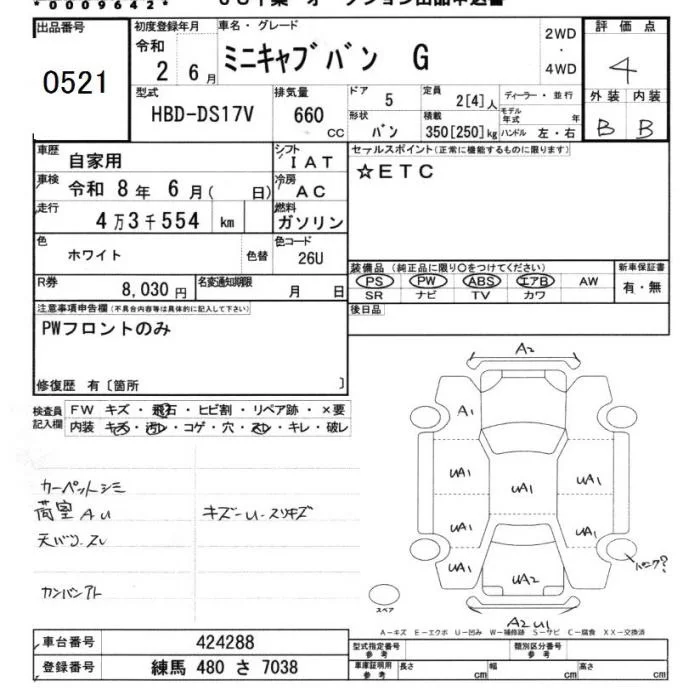 *0009642*
出品番号
0521
初度登録年月
令和
2 6月
車名・グレード
ミニキャブバン G
2WD
・
4WD
評価点
4
外装 内装
B B
型式
HBD-DS17V
排気量
660
CC
ドア
5
定員
2[4]人
ディーラー・並行
形状
バン
積載
350[250]kg
モデル年式 年
ハンドル 左・右
車歴
自家用
シフト
IAT
セールスポイント(正常に機能するものに限ります)
☆ETC
車検
令和 8年 6月( 日)
冷房
AC
走行
4万3千554 km
燃料
ガソリン
色
ホワイト
色替
色コード
26U
装備品 (純正品に限り○をつけてください)
PS PW ABS エアB AW
SR ナビ TV カワ
新車保証書
有・無
R券
8,030円
名変通知期限
月 日
後日品
注意事項申告欄(不具合内容等は具体的に記入して下さい)
PWフロントのみ
修復歴 有〔箇所 〕
検査員
記入欄
FW キズ・飛石・ヒビ割・リペア跡・×要
内装 キズ・汚レ・コゲ・穴・スレ・キレ・破レ
カーペットシミ
荷室AU キズ-U-スリキズ
天バリ・スレ
カンバンアト
A2
A1
UA1 UA1 UA1
UA1 UA1
UA1 UA2
パンク?
スペア
A2U1
A-キズ E-エクボ U-凹み W-補修跡 S-サビ C-腐食 XX-交換済
車台番号
424288
登録番号
練馬 480 さ 7038
型式指定番号
参考
類別区分番号
参考
車庫証明用
参考
長さ cm 幅 cm 高さ cm